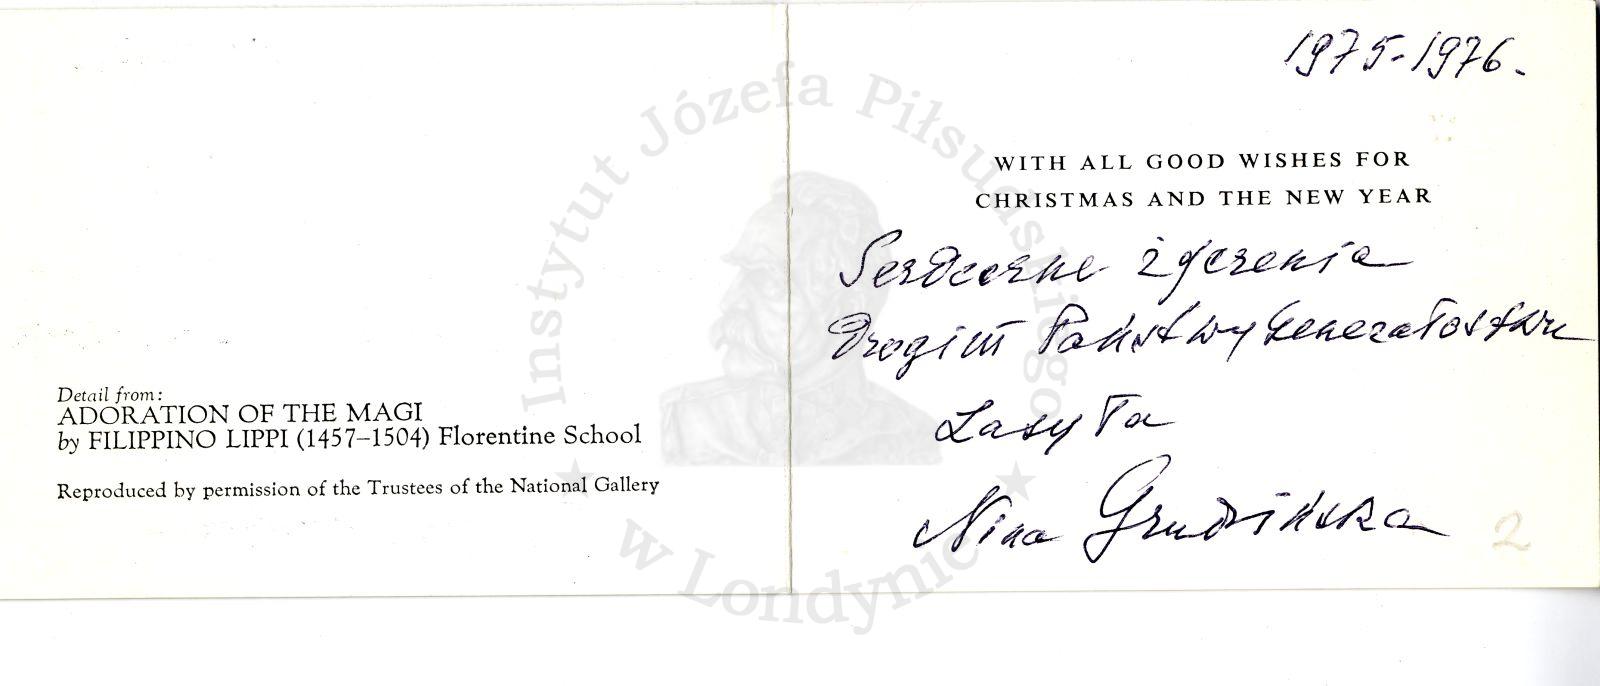 Detail from:
ADORATION OF THE MAGI
by FILIPPINO LIPPI (1457–1504) Florentine School
Reproduced by permission of the Trustees of the National Gallery
1975-1976.
WITH ALL GOOD WISHES FOR
CHRISTMAS AND THE NEW YEAR
Serdeczne życzenia
Drogim Państwu Generałostwu
zasyła
Nina Grudzińska
2
Instytut Józefa Piłsudskiego
w Londynie